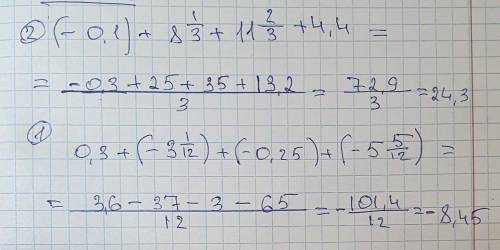 ② (-0,1) + 8 1/3 + 11 2/3 + 4,4 =
= (-0,3 + 25 + 35 + 13,2)/3 = 72,9/3 = 24,3
① 0,3 + (-3 1/12) + (-0,25) + (-5 5/12) =
= (3,6 - 37 - 3 - 65)/12 = -101,4/12 = -8,45